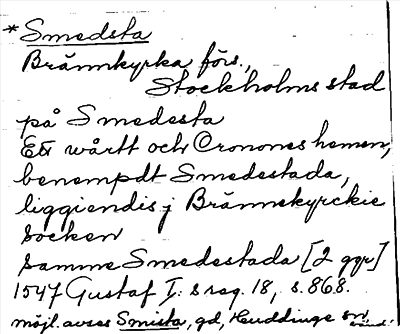 * Smedsta
Brännkyrka förs.,
Stockholms stad
på Smedesta
Ett wårtt och Cronones hemen,
benempdt Smedestada,
liggiendis j Brännekyrckie
socken
samme Smedestada [2 ggr]
1547 Gustaf I:s reg. 18, s. 868.
möjl. avses Smista, gd, Huddinge sn